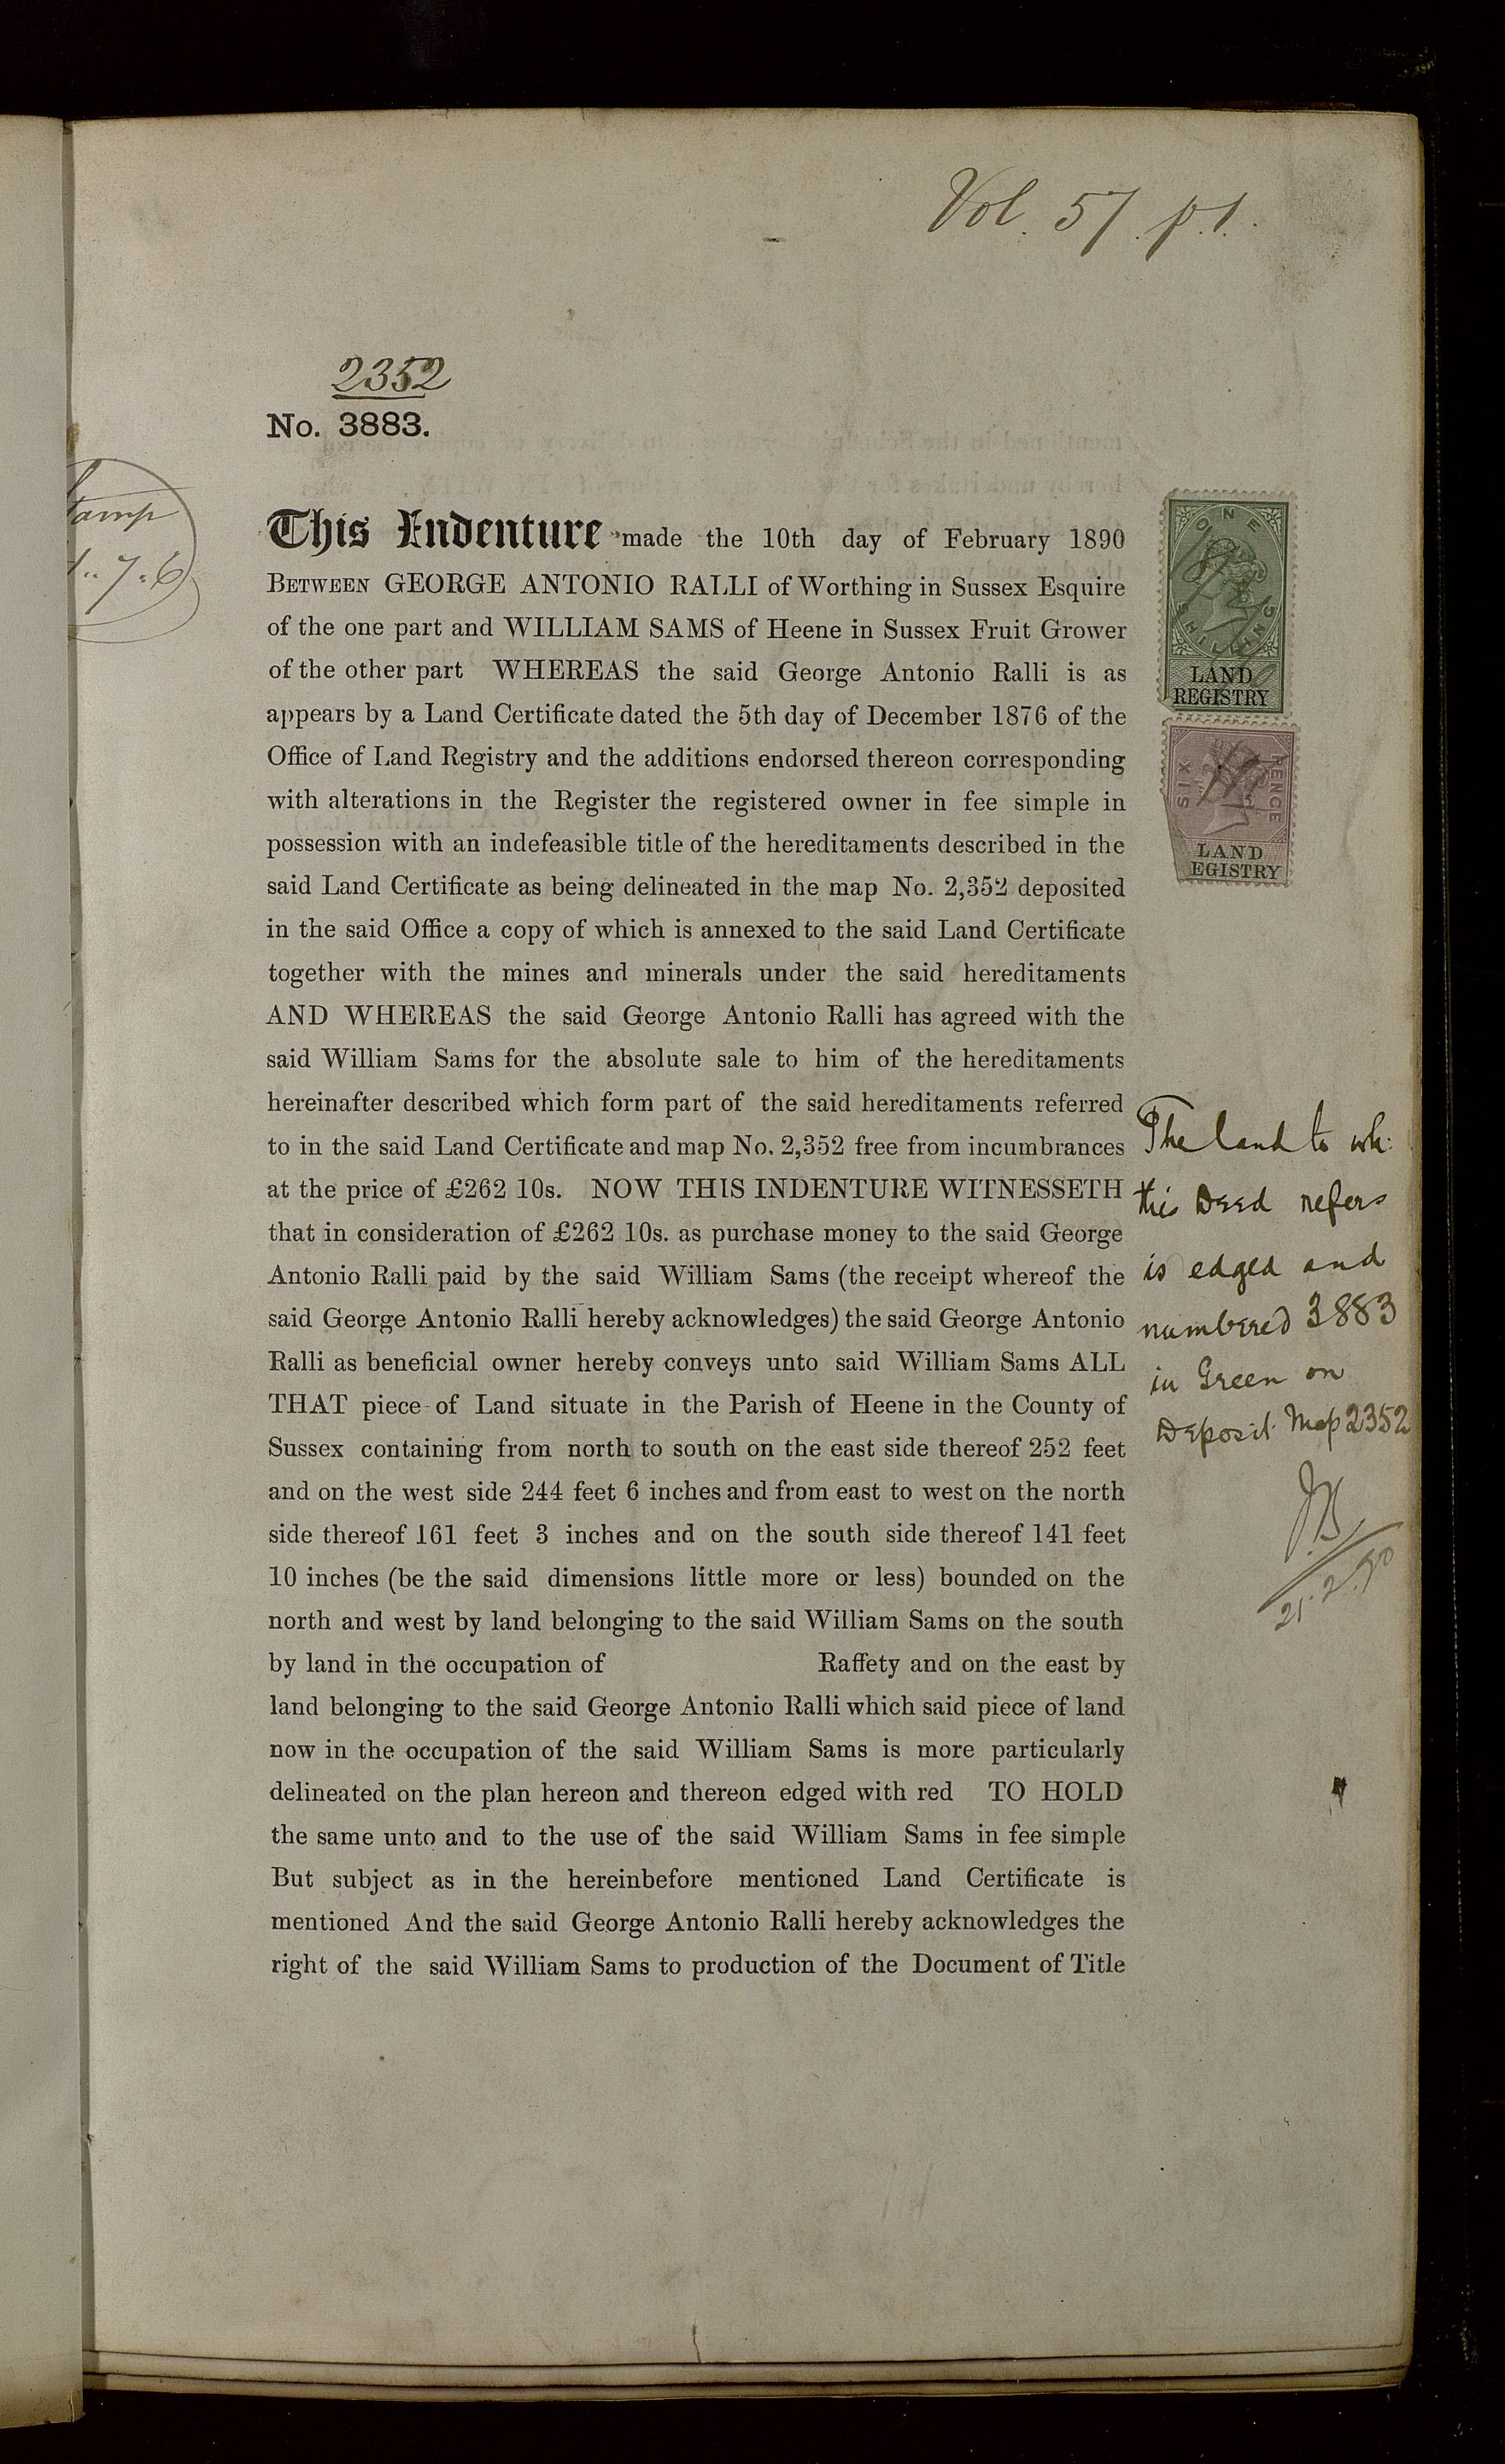 Vol. 57. p.1.
2352
No. 3883.
This Indenture made the 10th day of February 1890
BETWEEN GEORGE ANTONIO RALLI of Worthing in Sussex Esquire
of the one part and WILLIAM SAMS of Heene in Sussex Fruit Grower
of the other part WHEREAS the said George Antonio Ralli is as
appears by a Land Certificate dated the 5th day of December 1876 of the
Office of Land Registry and the additions endorsed thereon corresponding
with alterations in the Register the registered owner in fee simple in
possession with an indefeasible title of the hereditaments described in the
said Land Certificate as being delineated in the map No. 2,352 deposited
in the said Office a copy of which is annexed to the said Land Certificate
together with the mines and minerals under the said hereditaments
AND WHEREAS the said George Antonio Ralli has agreed with the
said William Sams for the absolute sale to him of the hereditaments
hereinafter described which form part of the said hereditaments referred
to in the said Land Certificate and map No. 2,352 free from incumbrances
at the price of £262 10s. NOW THIS INDENTURE WITNESSETH
that in consideration of £262 10s. as purchase money to the said George
Antonio Ralli paid by the said William Sams (the receipt whereof the
said George Antonio Ralli hereby acknowledges) the said George Antonio
Ralli as beneficial owner hereby conveys unto said William Sams ALL
THAT piece of Land situate in the Parish of Heene in the County of
Sussex containing from north to south on the east side thereof 252 feet
and on the west side 244 feet 6 inches and from east to west on the north
side thereof 161 feet 3 inches and on the south side thereof 141 feet
10 inches (be the said dimensions little more or less) bounded on the
north and west by land belonging to the said William Sams on the south
by land in the occupation of Raffety and on the east by
land belonging to the said George Antonio Ralli which said piece of land
now in the occupation of the said William Sams is more particularly
delineated on the plan hereon and thereon edged with red TO HOLD
the same unto and to the use of the said William Sams in fee simple
But subject as in the hereinbefore mentioned Land Certificate is
mentioned And the said George Antonio Ralli hereby acknowledges the
right of the said William Sams to production of the Document of Title
ONE
SHILLING
LAND
REGISTRY
SIX PENCE
LAND
EGISTRY
The land to wh:
this Deed refers
is edged and
numbered 3883
in Green on
Deposit Map 2352
21.2.90
tamp
7.6